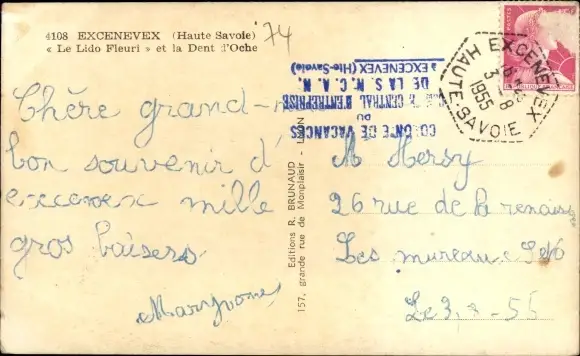 4108 EXCENEVEX (Haute Savoie)
« Le Lido Fleuri » et la Dent d'Oche
74
COLONIE DE VACANCES
DU
CENTRAL D'ENTREPRISE
DE LA S. N. C. A. N.
à EXCENEVEX (Hte-Savoie)
EXCENEVEX
3 - 8
1955
HAUTE-SAVOIE
Chère grand-
bon souvenir d'
excenevex mille
gros baisers
Maryvonne
Editions R. BRUNAUD
157, grande rue de Monplaisir - LYON
M Mersy
26 rue de la renais
Les mureaux S et O
Le 3 8 - 55